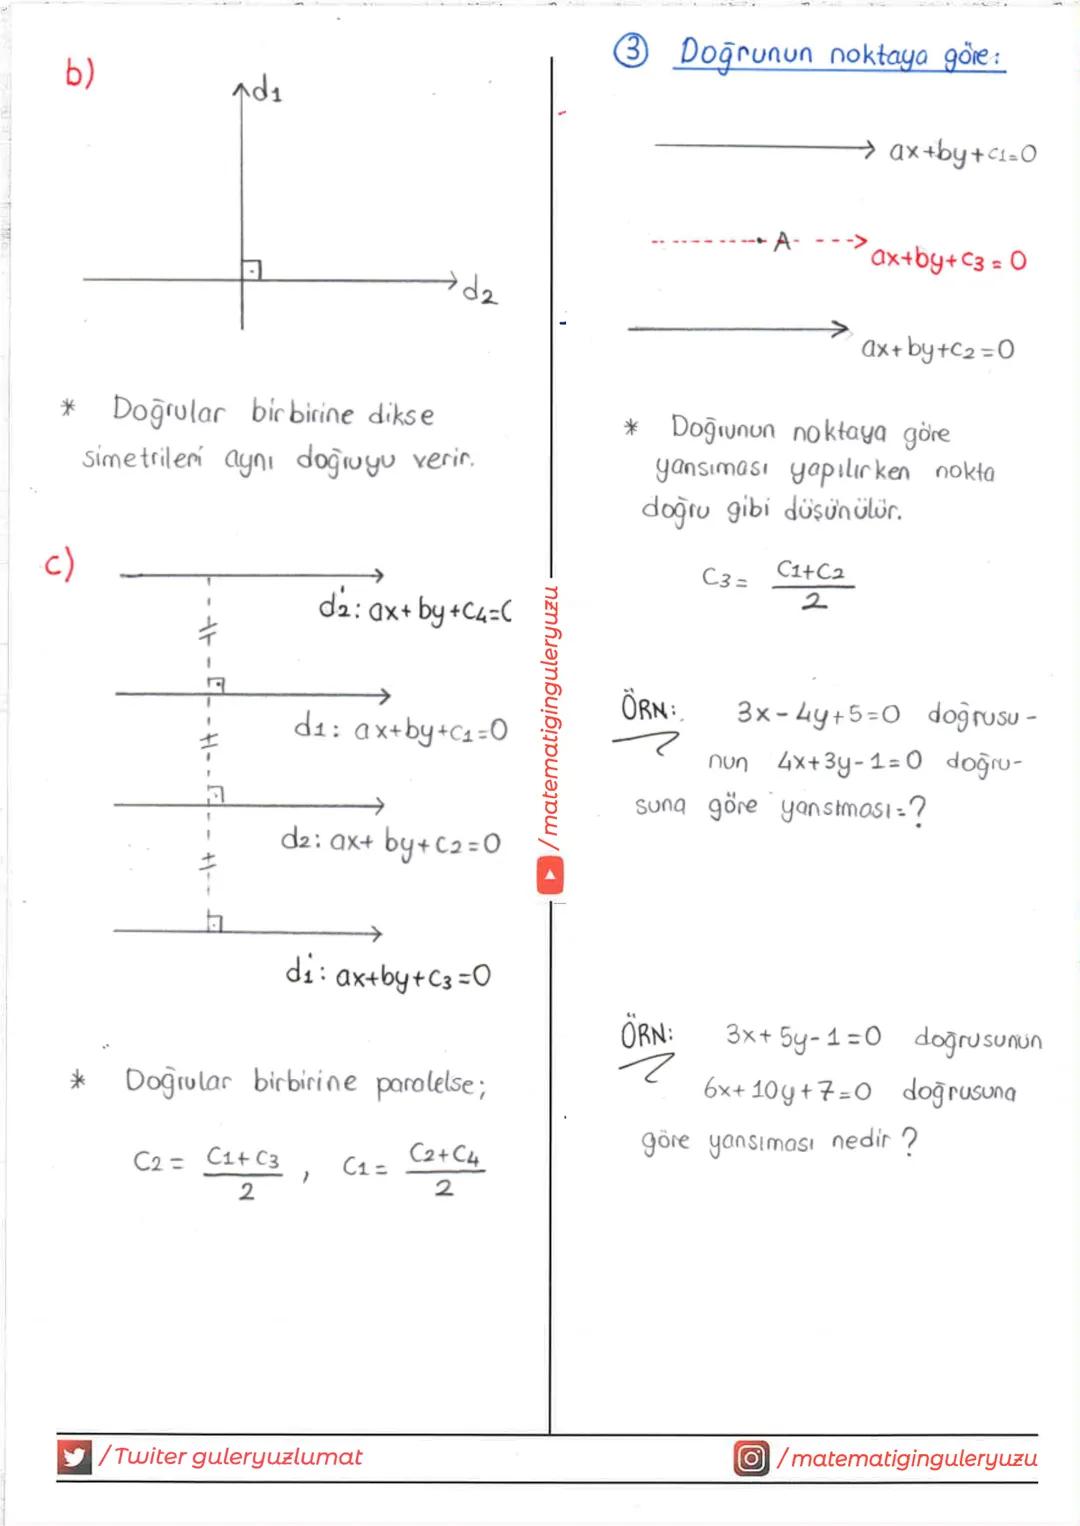 b)
d1
d2
* Doğrular birbirine dikse
simetrileri aynı doğruyu verir.
c)
d2': ax+by+C4=0
d1: ax+by+C1=0
d2: ax+by+C2=0
d1': ax+by+C3=0
* Doğrular birbirine paralelse;
C2 = C1+C3/2 , C1 = C2+C4/2
/matematiginguleryuzu
③ Doğrunun noktaya göre:
ax+by+C1=0
A
ax+by+C3=0
ax+by+C2=0
* Doğrunun noktaya göre
yansıması yapılırken nokta
doğru gibi düşünülür.
C3 = C1+C2/2
ÖRN: 3x-4y+5=0 doğrusu-
nun 4x+3y-1=0 doğru-
suna göre yansıması=?
ÖRN: 3x+5y-1=0 doğrusunun
6x+10y+7=0 doğrusuna
göre yansıması nedir?
/Twiter guleryuzlumat
/matematiginguleryuzu